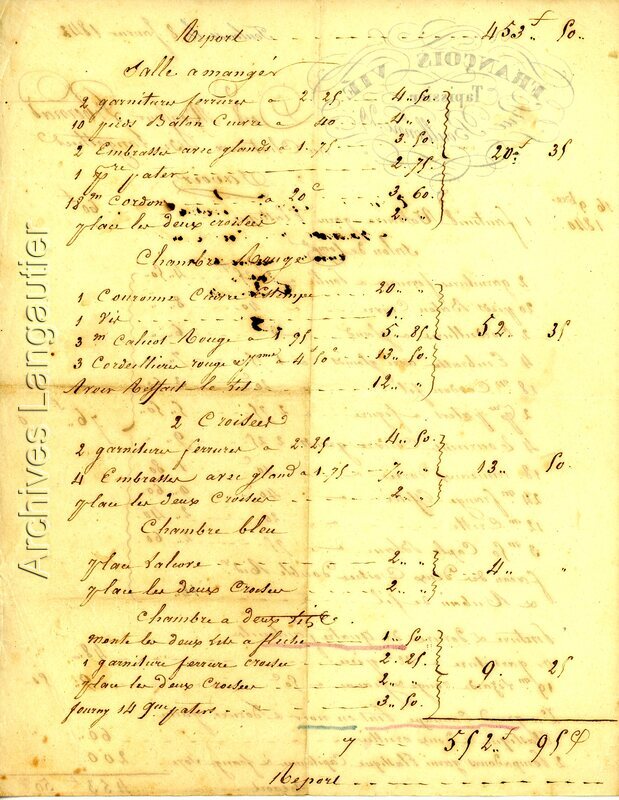 Report - - - - - - 453 f 50..
Salle a manger
2 garnitures ferrures a 2.25 - - 4.50.
10 pieds Bâton Cuivre a 40 - - 4.. "
2 Embrasses avec glands a 1.75 - - 3.50.
1 pre pater - - - 2.75. 20 f 35
18 m Cordon - - a 20 c - - 3.60.
place les deux croisees - - 2.. "
Chambre Rouge
1 Couronne Cuivre Estampe 20.. "
1 Vis - - - 1.. "
3 m Calicot Rouge a 1.95 - - 5.85 52.. 35
3 Cordeilliere rouge a 4.50 c - - 13.50.
Avoir Reffait le Lit - - - 12.. "
2 Croisees
2 garniture ferrures a 2.25 - - 4.50.
4 Embrasses avec gland a 1.75 - - 7.. " 13.. 50.
place les deux Croisee - - - 2.. "
Chambre bleu
place - - - 2.. "
4.. "
place les deux Croisee - - 2.. "
Chambre a deux Lits
monte les deux Lit a fleche - - 1..50
1 garniture ferrure croisee - - 2.25. 9. 25
place les deux Croisee - - - 2.. "
fourny 14 paters - - - 3.50.
552 f 95 c
Report - - - - - -
Archives Langautier
FRANÇOIS VIÉ
Tapissier